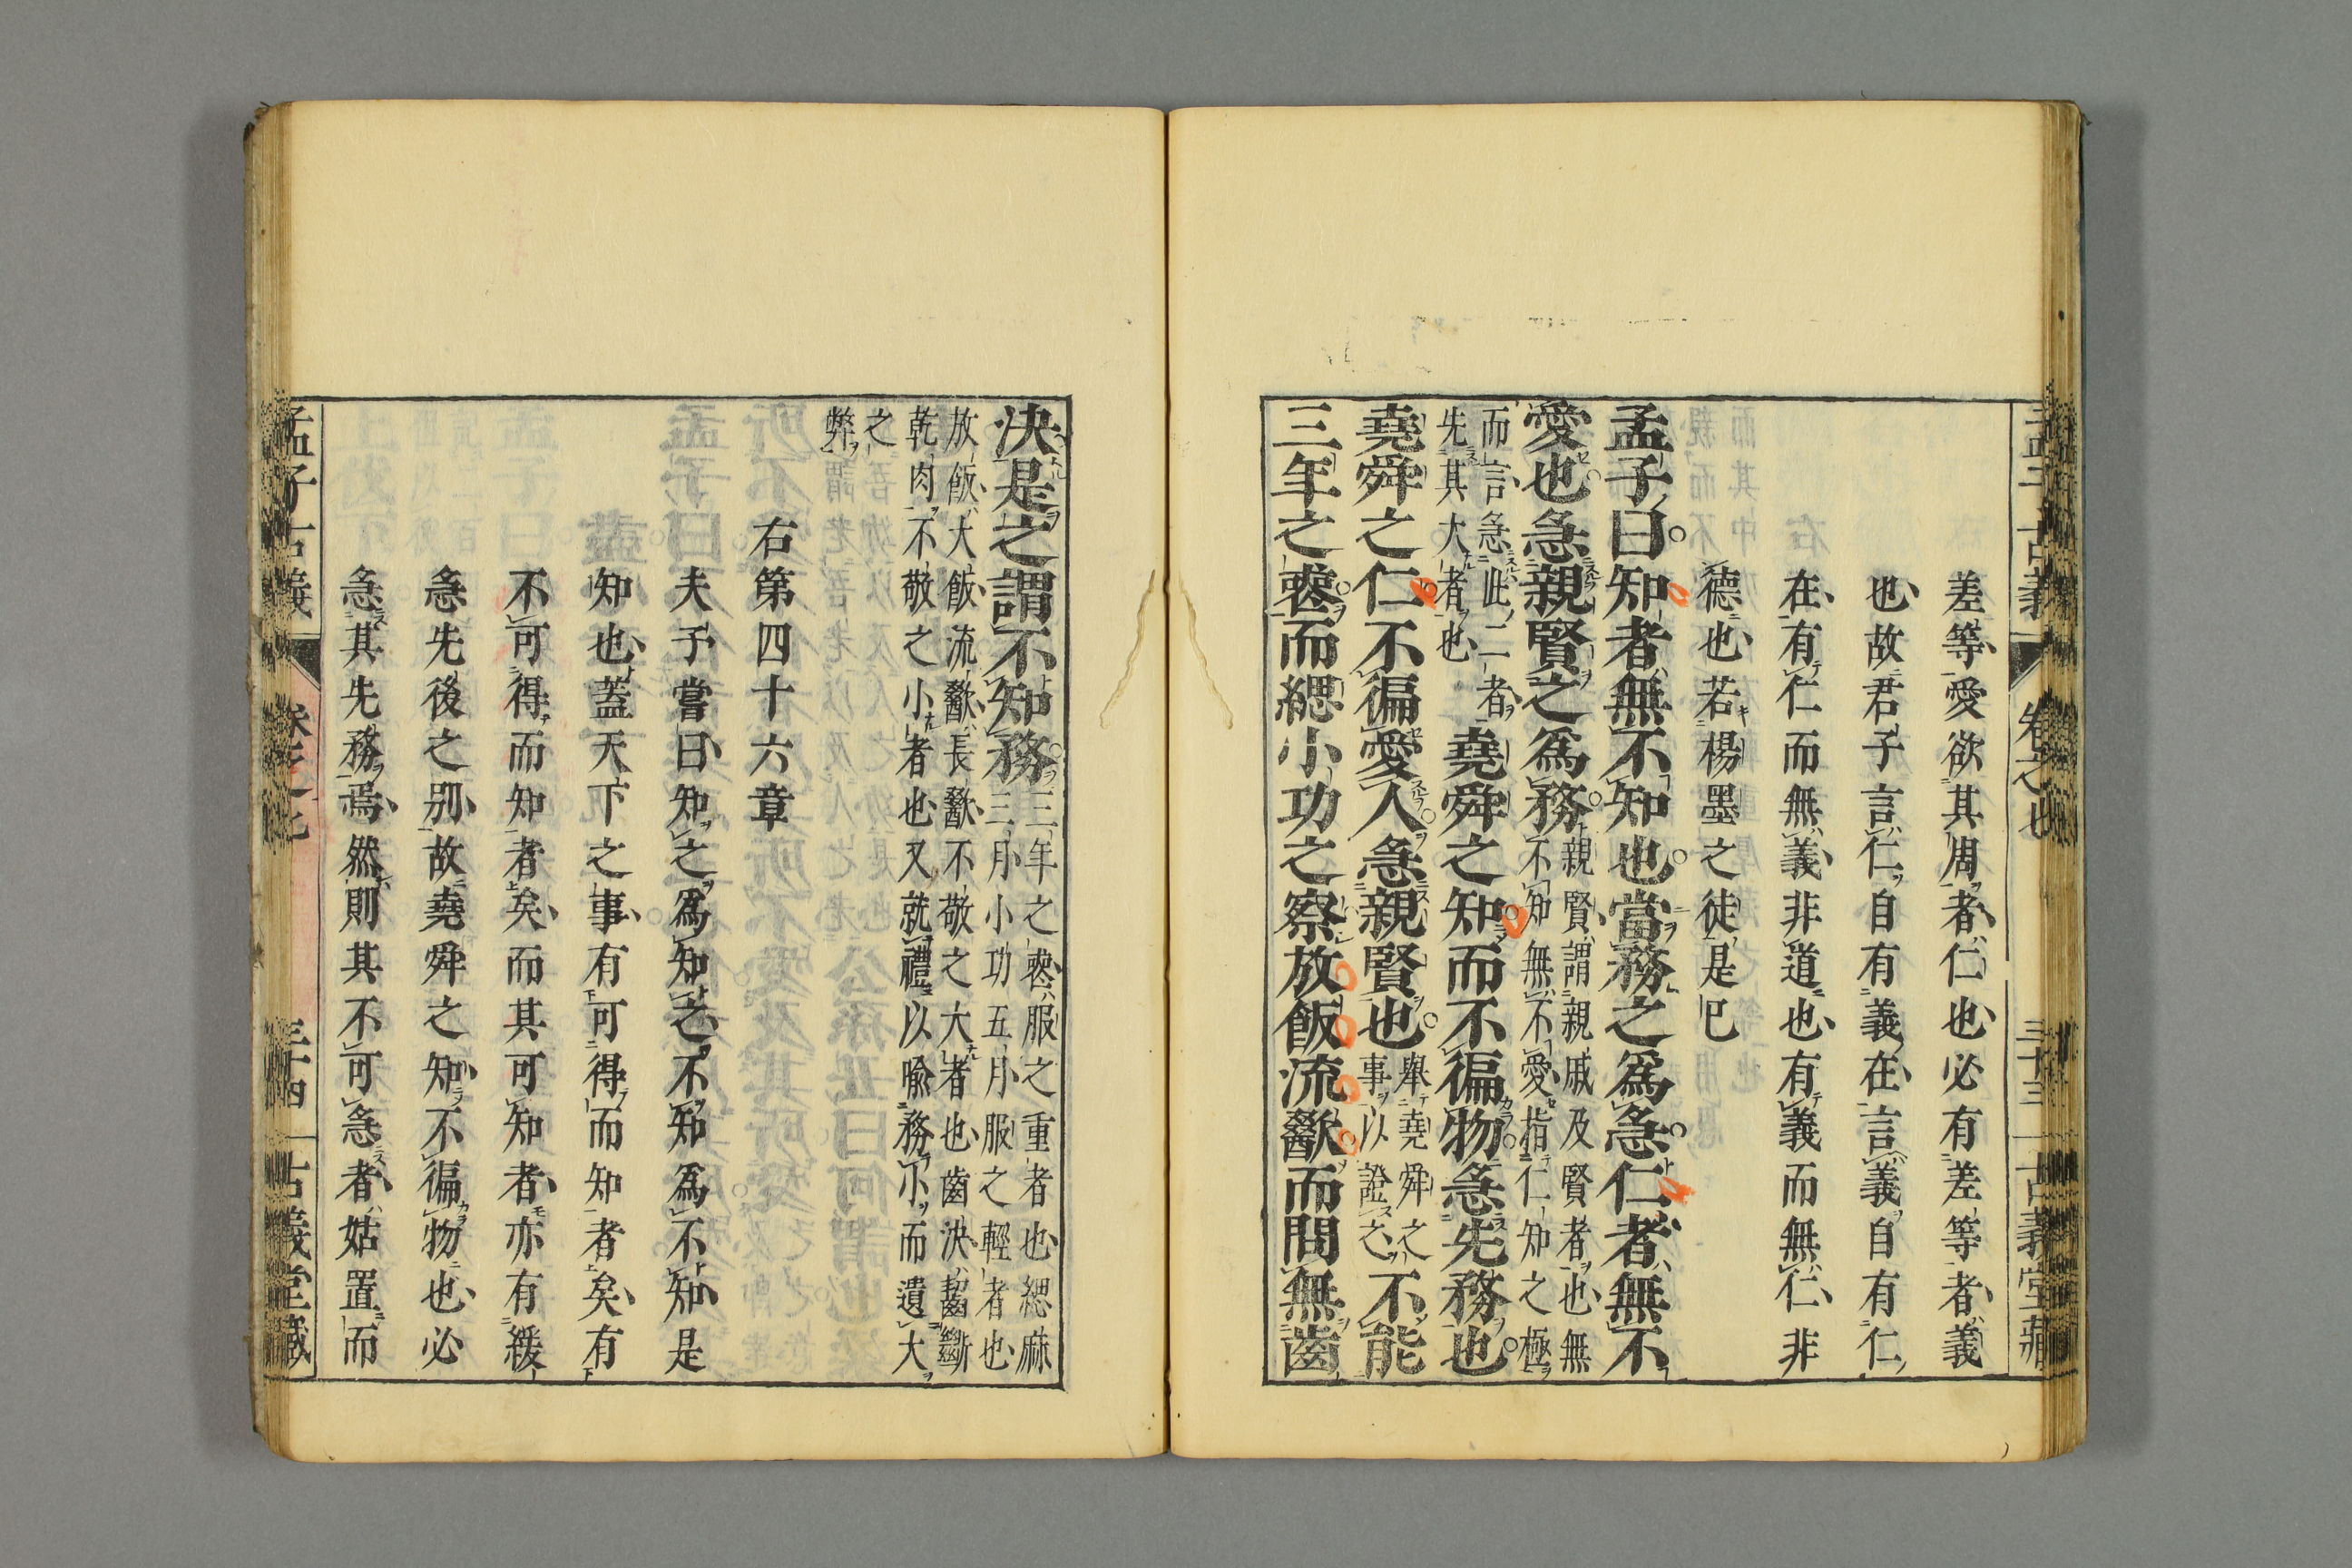 孟子古義 卷之七 三十三 古義堂藏
差等愛欲其周者仁也必有差等者義
也故君子言仁自有義在言義自有仁
在有仁而無義非道也有義而無仁非
德也若楊墨之徒是已
孟子曰知者無不知也當務之爲急仁者無不
愛也急親賢之爲務
親賢謂親戚及賢者也無
不知無不愛指仁知之極
而言急此二者
先其大者也
堯舜之知而不徧物急先務也
堯舜之仁不徧愛人急親賢也
舉堯舜之
事以證之
不能
三年之喪而緦小功之察放飯流歠而問無齒
決是之謂不知務
三年之喪服之重者也緦麻
三月小功五月服之輕者也
放飯大飯流歠長歠不敬之大者也齒決齧斷
乾肉不敬之小者也又就禮以喩務小而遺大
之
弊
右第四十六章
夫子嘗曰知之爲知之不知爲不知是
知也蓋天下之事有可得而知者矣有
不可得而知者矣而其可知者亦有緩
急先後之別故堯舜之知不徧物也必
急其先務焉然則其不可急者姑置而
孟子古義 卷之七 三十四 古義堂藏